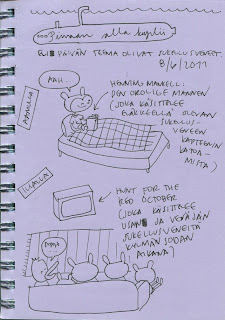 ...Pinnan alla kyllä
ELI PÄIVÄN TEEMA OLIVAT SUKELLUSVENEET.
8/6/2011
AAMULLA
AAH..
HENNING MANKELL:
DEN OROLIGE MANNEN
(JOKA KÄSITTELEE
ELÄKKEELLÄ OLEVAN
SUKELLUS-
VENEEN
KAPTEENIN
KATOA-
MISTA)
ILLALLA
HUNT FOR THE
RED OCTOBER
(JOKA KÄSITTELEE
USAN JA VENÄJÄN
SUKELLUSVENEITÄ
KYLMÄN SODAN
AIKANA)